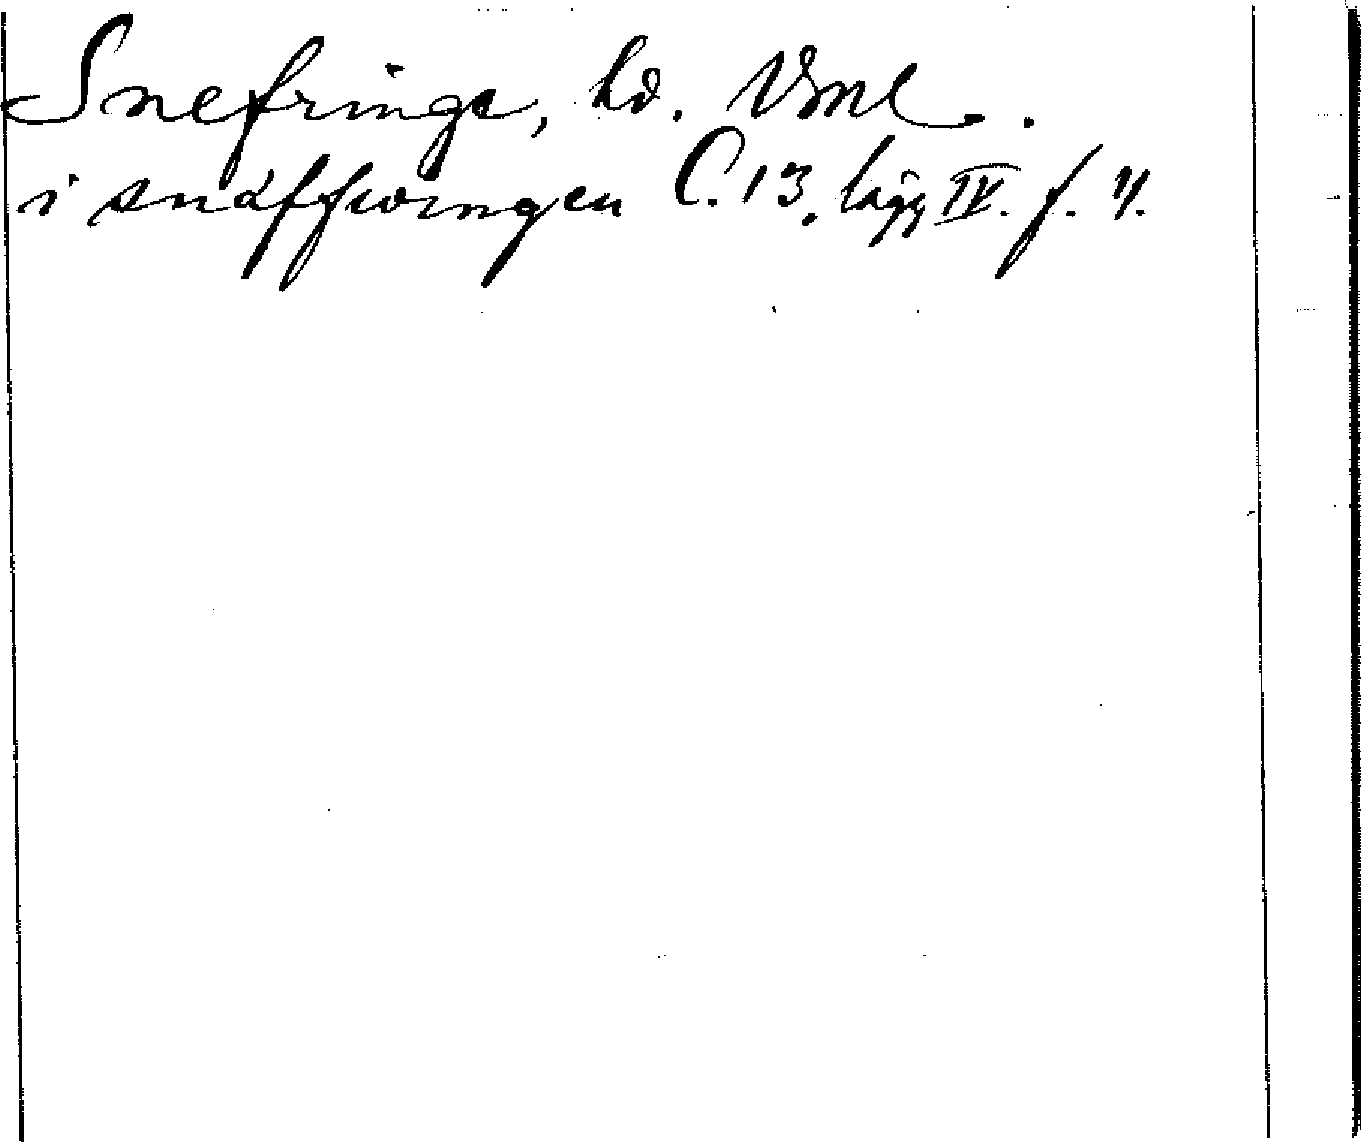 Snefringe, hd. Vml.
i snäffwingen C. 13. lägg IV. f. 4.